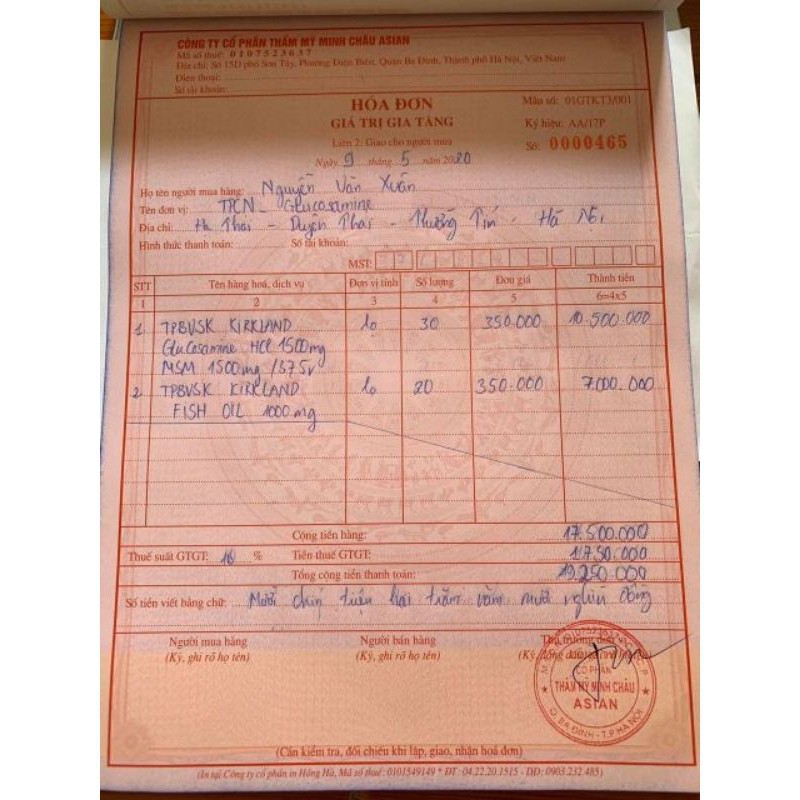 CÔNG TY CỔ PHẦN THẨM MỸ MINH CHÂU ASIAN
Mã số thuế: 0107523637
Địa chỉ: Số 15D phố Sơn Tây, Phường Điện Biên, Quận Ba Đình, Thành phố Hà Nội, Việt Nam
Điện thoại:
Số tài khoản:
HÓA ĐƠN
GIÁ TRỊ GIA TĂNG
Liên 2: Giao cho người mua
Ngày 9 tháng 5 năm 2020
Mẫu số: 01GTKT3/001
Ký hiệu: AA/17P
Số: 0000465
Họ tên người mua hàng: Nguyễn Văn Xuân
Tên đơn vị: TPCN - Glucosamine
Địa chỉ: Hà Thái - Duyên Thái - Thường Tín - Hà Nội
Hình thức thanh toán: Số tài khoản:
MST:
STT Tên hàng hoá, dịch vụ Đơn vị tính Số lượng Đơn giá Thành tiền
1 2 3 4 5 6=4x5
1 TPBVSK KIRKLAND lọ 30 350.000 10.500.000
Glucosamine HCl 1500mg
MSM 1500mg /375v
2 TPBVSK KIRKLAND lọ 20 350.000 7.000.000
FISH OIL 1000mg
Cộng tiền hàng: 17.500.000
Thuế suất GTGT: 10 % Tiền thuế GTGT: 1.750.000
Tổng cộng tiền thanh toán: 19.250.000
Số tiền viết bằng chữ: Mười chín triệu hai trăm năm mươi nghìn đồng
Người mua hàng Người bán hàng Thủ trưởng đơn vị
(Ký, ghi rõ họ tên) (Ký, ghi rõ họ tên) (Ký, đóng dấu,
CỔ PHẦN
THẨM MỸ MINH CHÂU
ASIAN
Q. BA ĐÌNH - T.P HÀ NỘI
(Cần kiểm tra, đối chiếu khi lập, giao, nhận hoá đơn)
(In tại Công ty cổ phần in Hồng Hà, Mã số thuế: 0101549149 * ĐT: 04.22.20.1515 - DĐ: 0903.232.485)